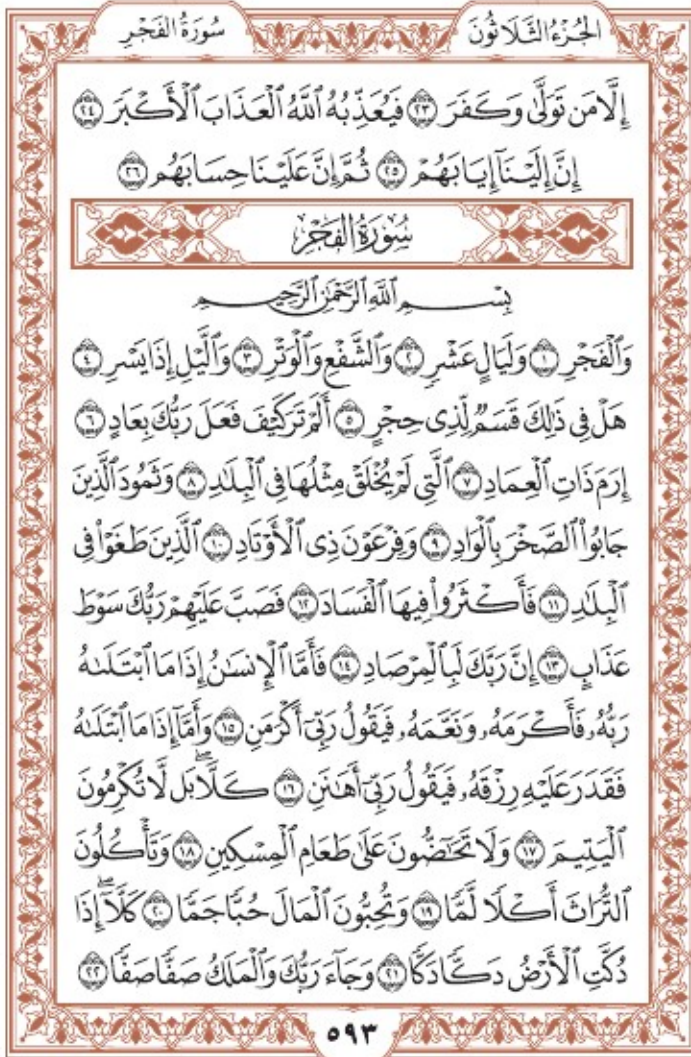 سُورَةُ الفَجْرِ
الجُزْءُ الثَّلَاثُونَ
إِلَّا مَن تَوَلَّىٰ وَكَفَرَ ٢٣ فَيُعَذِّبُهُ ٱللَّهُ ٱلْعَذَابَ ٱلْأَكْبَرَ ٢٤
إِنَّ إِلَيْنَآ إِيَابَهُمْ ٢٥ ثُمَّ إِنَّ عَلَيْنَا حِسَابَهُم ٢٦
سُورَةُ الفَجْرِ
بِسْمِ ٱللَّهِ ٱلرَّحْمَٰنِ ٱلرَّحِيمِ
وَٱلْفَجْرِ ١ وَلَيَالٍ عَشْرٍ ٢ وَٱلشَّفْعِ وَٱلْوَتْرِ ٣ وَٱلَّيْلِ إِذَا يَسْرِ ٤
هَلْ فِي ذَٰلِكَ قَسَمٌ لِّذِي حِجْرٍ ٥ أَلَمْ تَرَ كَيْفَ فَعَلَ رَبُّكَ بِعَادٍ ٦
إِرَمَ ذَاتِ ٱلْعِمَادِ ٧ ٱلَّتِي لَمْ يُخْلَقْ مِثْلُهَا فِي ٱلْبِلَٰدِ ٨ وَثَمُودَ ٱلَّذِينَ
جَابُوا۟ ٱلصَّخْرَ بِٱلْوَادِ ٩ وَفِرْعَوْنَ ذِي ٱلْأَوْتَادِ ١٠ ٱلَّذِينَ طَغَوْا۟ فِي
ٱلْبِلَٰدِ ١١ فَأَكْثَرُوا۟ فِيهَا ٱلْفَسَادَ ١٢ فَصَبَّ عَلَيْهِمْ رَبُّكَ سَوْطَ
عَذَابٍ ١٣ إِنَّ رَبَّكَ لَبِٱلْمِرْصَادِ ١٤ فَأَمَّا ٱلْإِنسَٰنُ إِذَا مَا ٱبْتَلَىٰهُ
رَبُّهُۥ فَأَكْرَمَهُۥ وَنَعَّمَهُۥ فَيَقُولُ رَبِّيٓ أَكْرَمَنِ ١٥ وَأَمَّآ إِذَا مَا ٱبْتَلَىٰهُ
فَقَدَرَ عَلَيْهِ رِزْقَهُۥ فَيَقُولُ رَبِّيٓ أَهَٰنَنِ ١٦ كَلَّاۖ بَل لَّا تُكْرِمُونَ
ٱلْيَتِيمَ ١٧ وَلَا تَحَٰٓضُّونَ عَلَىٰ طَعَامِ ٱلْمِسْكِينِ ١٨ وَتَأْكُلُونَ
ٱلتُّرَاثَ أَكْلًا لَّمًّا ١٩ وَتُحِبُّونَ ٱلْمَالَ حُبًّا جَمًّا ٢٠ كَلَّآۖ إِذَا
دُكَّتِ ٱلْأَرْضُ دَكًّا دَكًّا ٢١ وَجَآءَ رَبُّكَ وَٱلْمَلَكُ صَفًّا صَفًّا ٢٢
٥٩٣